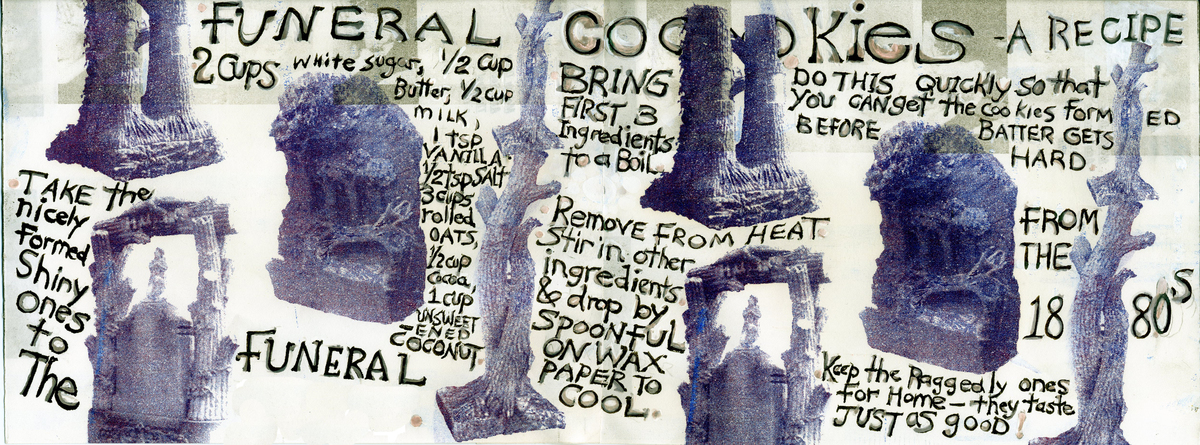 FUNERAL COOOKies - A RECIPE
2 CUPS white sugar, 1/2 CUP
Butter, 1/2 cup
milk,
1 tsp
VANILLA
1/2 tsp SALT
3 cups
rolled
OATS,
1/2 cup
Cocoa,
1 cup
UNSWEET
ENED
COCONUT
BRING
FIRST 3
Ingredients
to a Boil.
Remove FROM HEAT
Stir in other
ingredients
& drop by
SPOONFUL
ON WAX
PAPER TO
COOL.
DO THIS QUICKLY so that
YOU CAN get the cookies FORMED
BEFORE BATTER GETS
HARD
TAKE the
nicely
formed
Shiny
ones
to
The
FUNERAL
Keep the Raggedly ones
for Home - they taste
JUST AS GOOD!
FROM
THE
1880'S